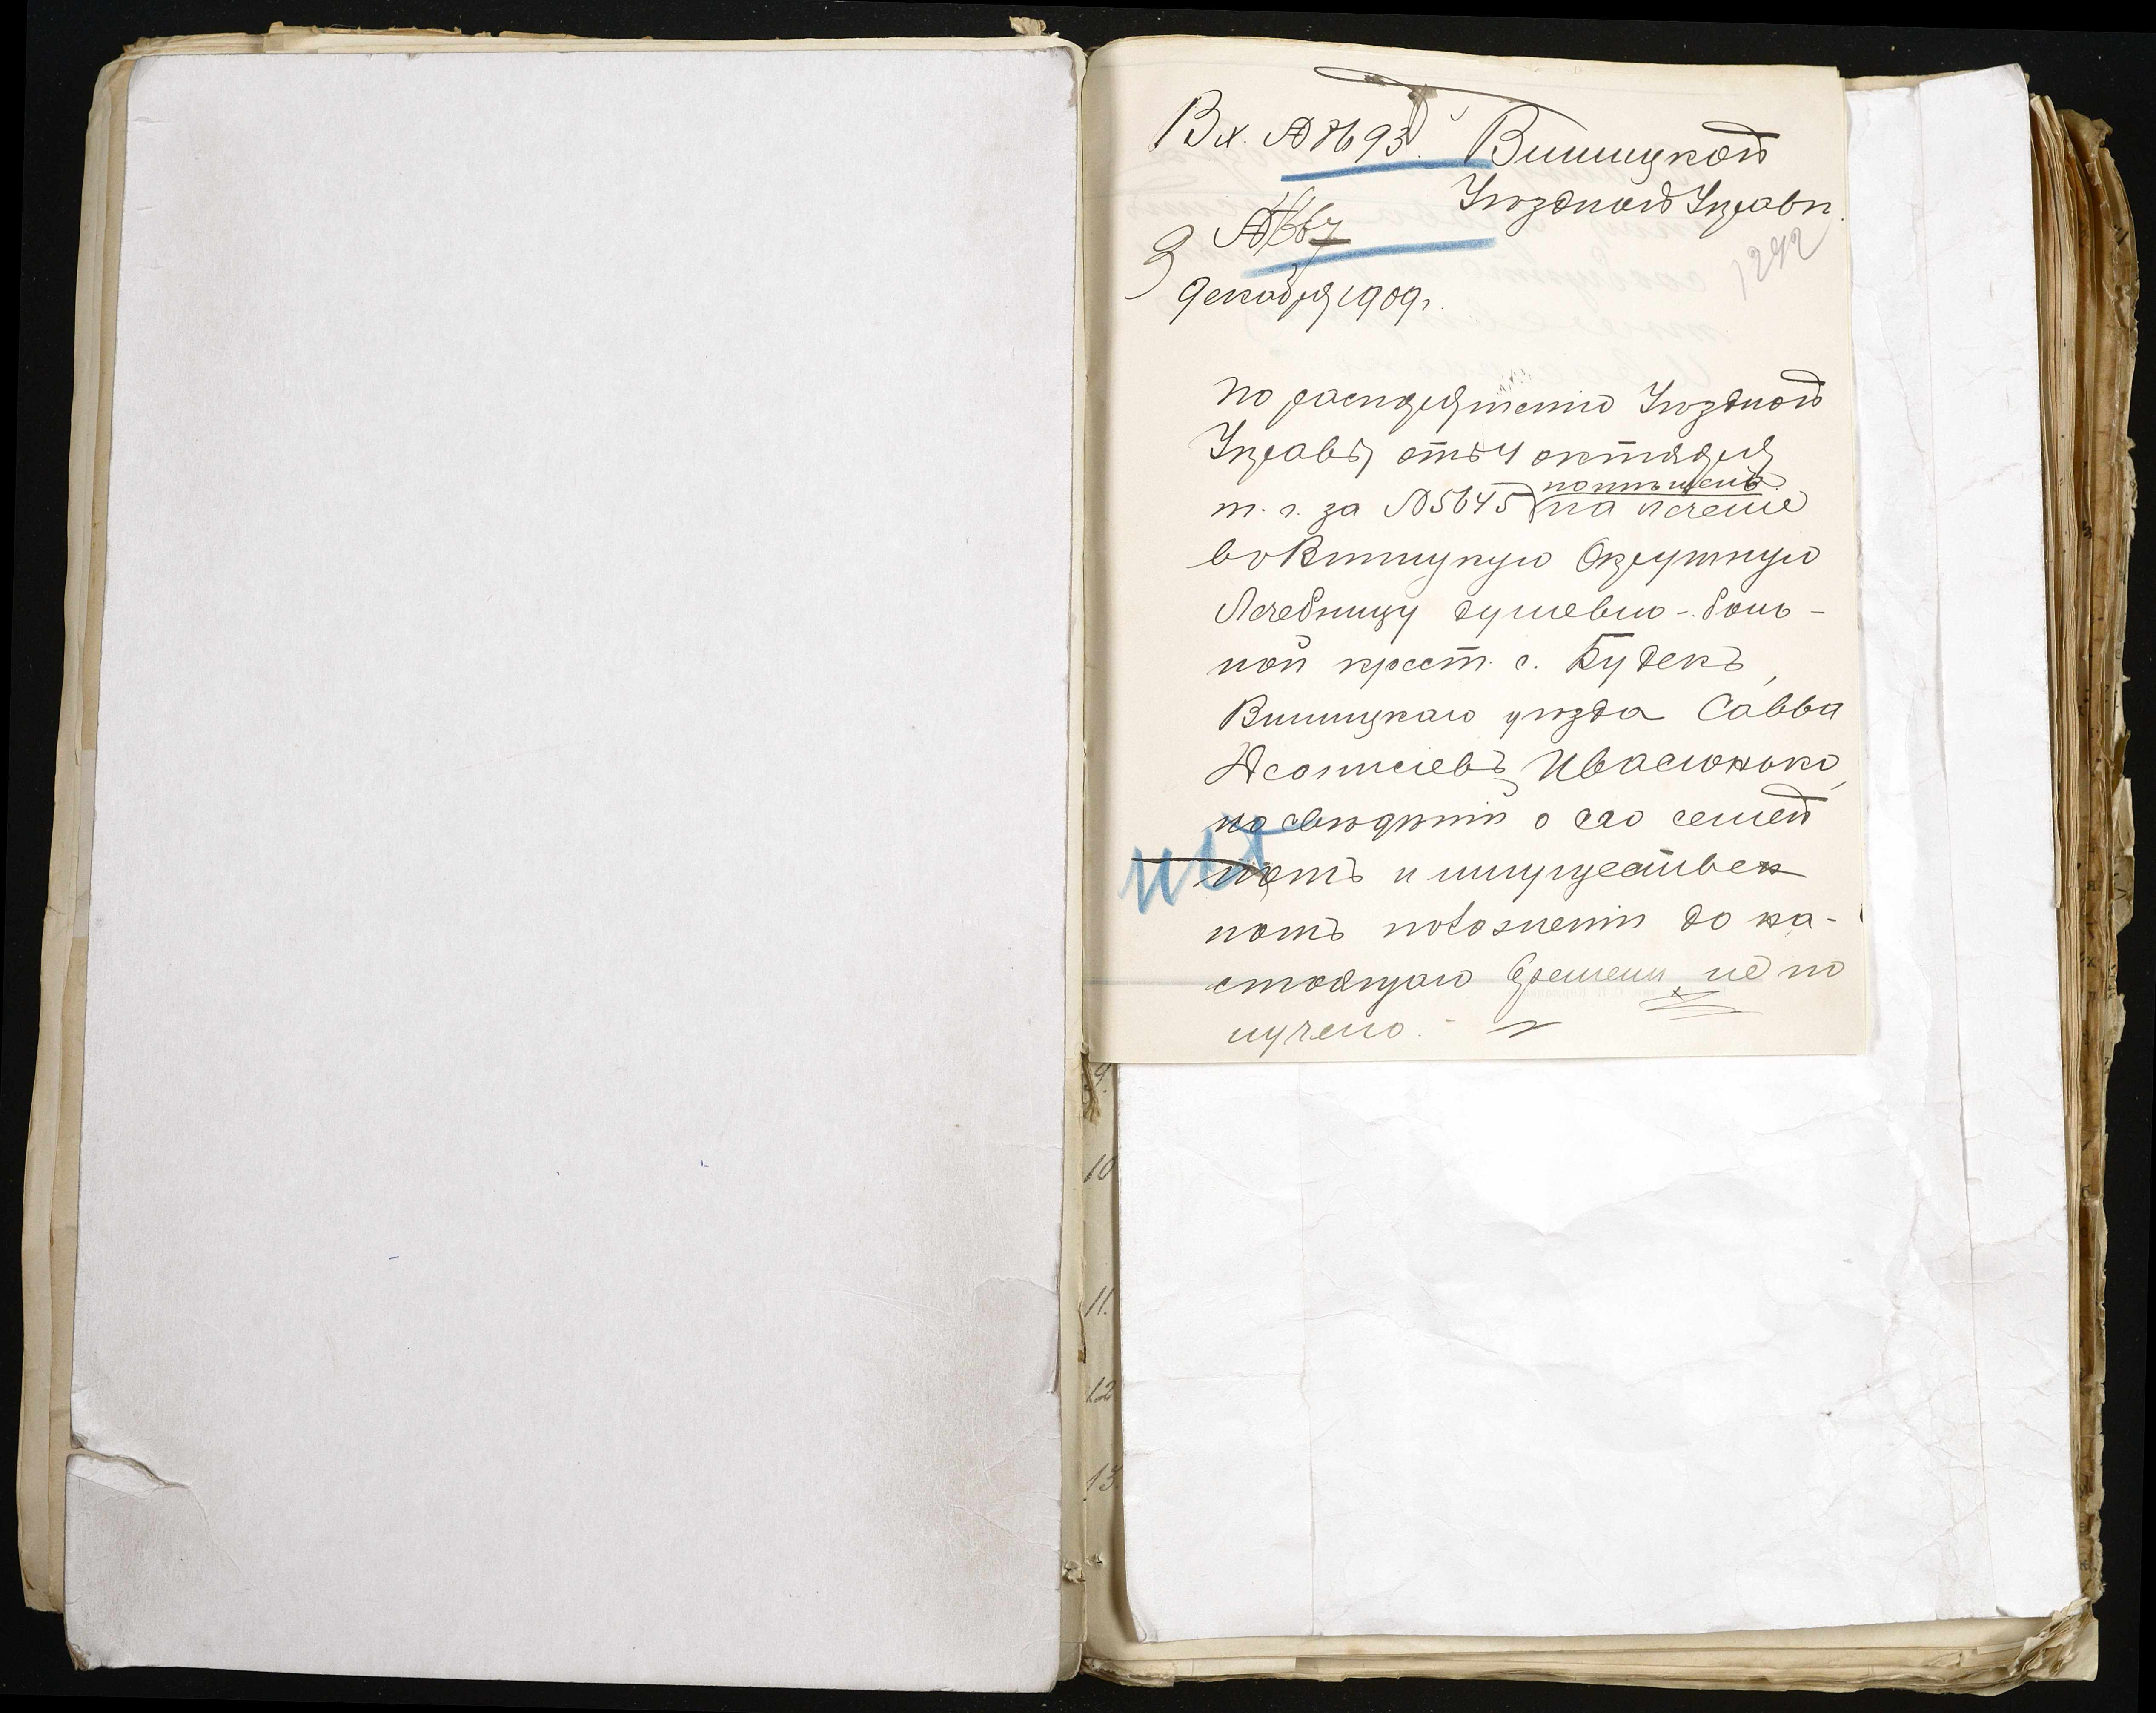 Вх. № 7693
Винницкой
Уѣздной Управѣ.
1242
№ 667
9
декабря 1909 г.
По распоряженію Уѣздной
Управы отъ 4 октября
т. г. за № 5645 помѣщенъ
на леченіе
во Винницкую Окружную
Лечебницу душевно-боль-
ной крест. с. Будекъ,
Винницкаго уѣзда Савва
Ивасюкъ,
но свѣдѣній о его семей
номъ и имуществен
номъ положеніи до на-
стоящаго времени не по
лучено.
10
11.
12
13.